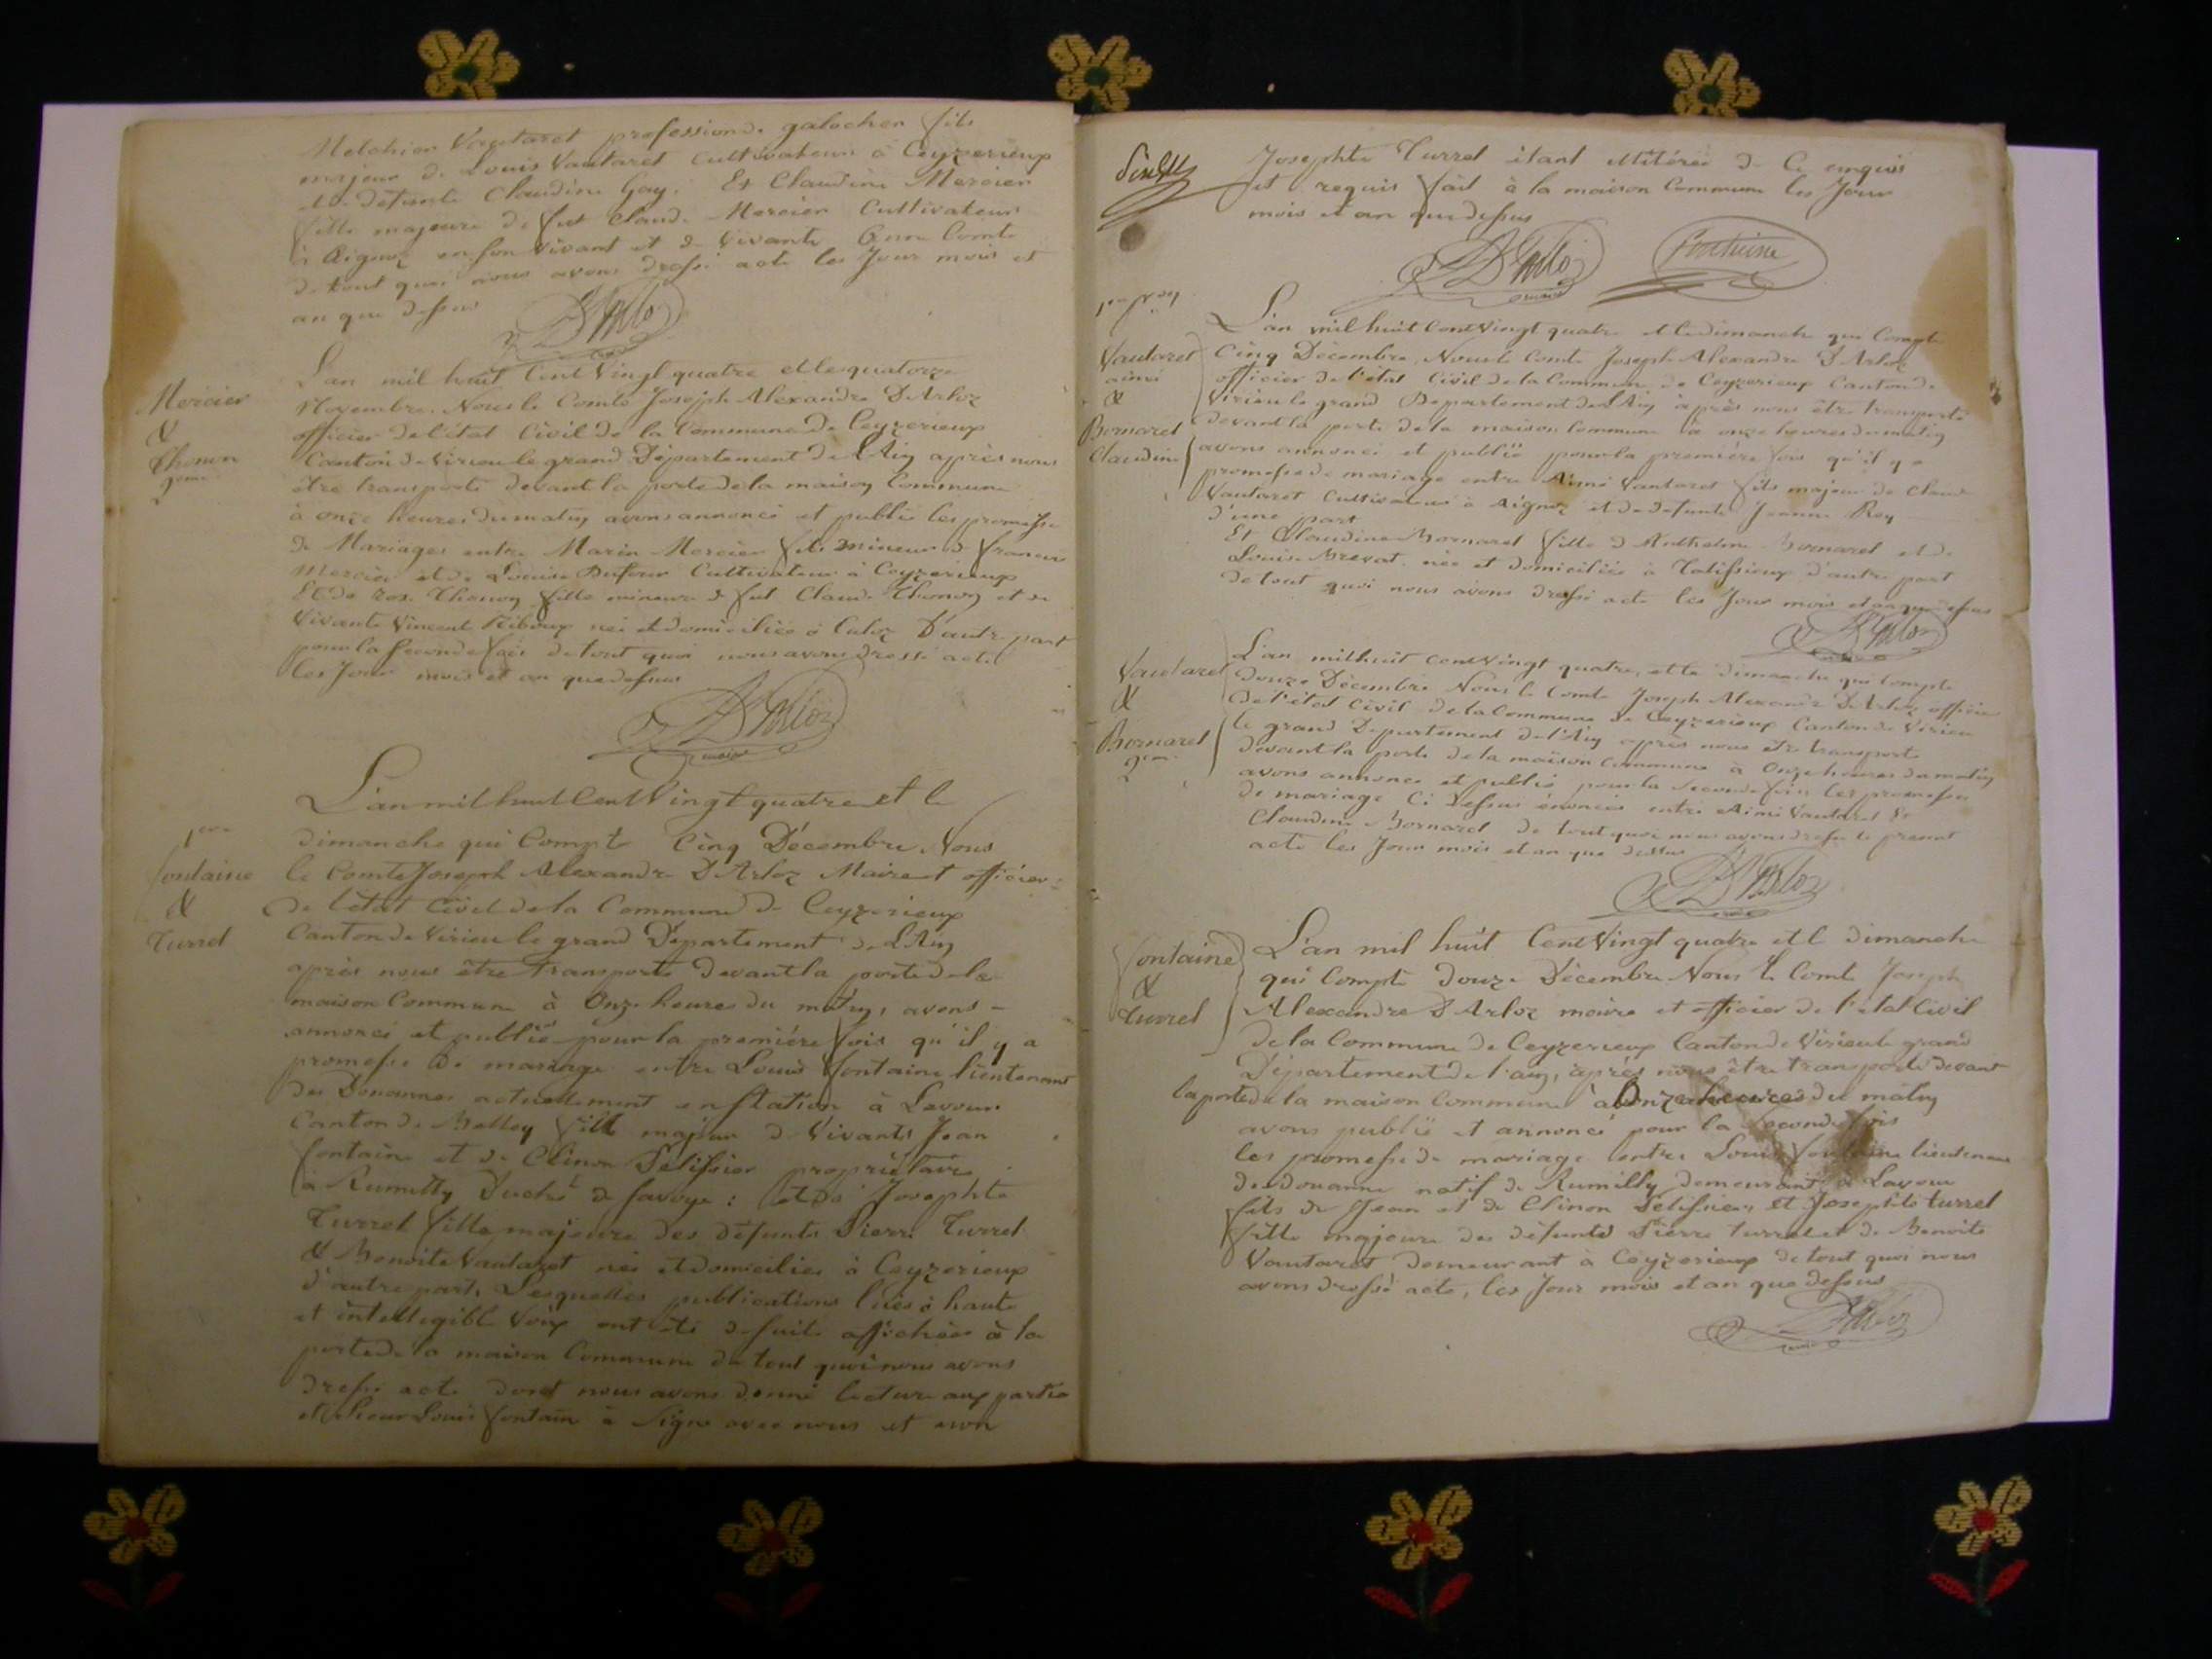 Melchior Vautaret profession de galocher fils
majeur de Louis Vautaret Cultivateur à Ceyzerieux
et de defunte Claudine Gay. Et Claudine Mercier
fille majeure de feu Claude Mercier Cultivateur
à Aignoz en son vivant et de vivante
de tout quoi nous avons dressé acte les Jour mois et
an que dessus
Mercier
&
Thonon
2eme
L'an mil huit Cent Vingt quatre et le quatorze
Novembre. Nous le Comte Joseph Alexandre D'Arloz
officier de l'état Civil de la Commune de Ceyzerieux
Canton de Virieu le grand Département de L'Ain après nous
être transporté devant la porte de la maison Commune
à onze heures du matin avons annoncé et publié les promesse
de Mariages entre Marin Mercier fils mineur de francois
Mercier et de Louise Dufour Cultivateur à Ceyzerieux
Et de Rose Thonon fille mineure de feu Claude Thonon et de
Vivante Vincent née et domiciliée à Culoz D'autre part
pour la seconde fois de tout quoi nous avons dressé acte
les Jour mois et an que dessus
D'Arloz
maire
1ere
fontaine
&
Turrel
L'an mil huit Cent Vingt quatre et le
dimanche qui Compte Cinq Décembre Nous
le Comte Joseph Alexandre D'Arloz Maire et officier
de l'état Civil de la Commune de Ceyzerieux
Canton de Virieu le grand Département de L'Ain
après nous être transporté devant la porte de la
maison Commune à Onze heures du matin, avons -
annoncé et publié pour la première fois qu'il y a
promesse de mariage entre Louis fontaine lieutenant
des Douannes actuellement en station à Lavour
Canton de Belley fils majeur de Vivants Jean
fontaine et de Clinon Pélissier propriétaire
à Rumilly Duché de Savoye : et de Josephte
Turrel fille majeure des défunts Pierre Turrel
& Benoite Vautaret née et domiciliée à Ceyzerieux
d'autre part, Lesquelles publications luës à haute
et intelligible Voix ont été de suite affichées à la
porte de la maison Commune de tout quoi nous avons
dressé acte dont nous avons donné lecture aux parties
et le sieur Louis fontain à Signé avec nous et non
Josephte Turrel étant illitérée de Ce enquis
et requis fait à la maison Commune les Jour
mois et an que dessus
D'Arloz
maire
fontaine
Vautaret
aimé
&
Bornarel
Claudine
L'an mil huit Cent Vingt quatre et le dimanche qui Compte
Cinq Décembre. Nous le Comte Joseph Alexandre D'Arloz
officier de l'état Civil de la Commune de Ceyzerieux Canton de
Virieu le grand Departement de l'Ain après nous être transporté
devant la porte de la maison Commune à onze heures du matin
avons annoncé et publié pour la première fois qu'il y a
promesse de mariage entre Aimé Vautaret fils majeur de Claude
Vautaret Cultivateur à Aignoz et de defunte Jeanne Rey
d'une part
Et Claudine Bornarel fille d'Anthelme Bornarel et de
Louise née et domiciliée à Talissieux d'autre part
de tout quoi nous avons dressé acte les Jour mois et an que dessus
D'Arloz
maire
Vautaret
&
Bornarel
2eme
L'an mil huit cent Vingt quatre, et le dimanche qui Compte
douze Décembre Nous le Comte Joseph Alexandre D'Arloz officier
de l'état Civil de la Commune de Ceyzerieux Canton de Virieu
le grand Departement de l'Ain après nous être transporté
devant la porte de la maison Commune à Onze heures du matin
avons annoncé et publié pour la seconde fois les promesses
de mariage Ci dessus énoncées entre Aimé Vautaret Et
Claudine Bornarel de tout quoi nous avons dressé le présent
acte les Jour mois et an que dessus
D'Arloz
fontaine
&
Turrel
L'an mil huit Cent Vingt quatre et le dimanche
qui Compte Douze Décembre Nous le Comte Joseph
Alexandre D'Arloz maire et officier de l'état Civil
de la Commune de Ceyzerieux Canton de Virieu le grand
Département de l'ain, après nous être transporté devant
la porte de la maison Commune à Onze heures du matin
avons publié et annoncé pour la Seconde fois
les promesse de mariage entre Louis fontaine lieutenant
des douanne natif de Rumilly demeurant à Lavour
fils de Jean et de Clinon Pélissier, Et Josephte turrel
fille majeure des défunts Pierre turrel et de Benoite
Vautaret demeurant à Ceyzerieux de tout quoi nous
avons dressé acte, les Jour mois et an que dessus
D'Arloz